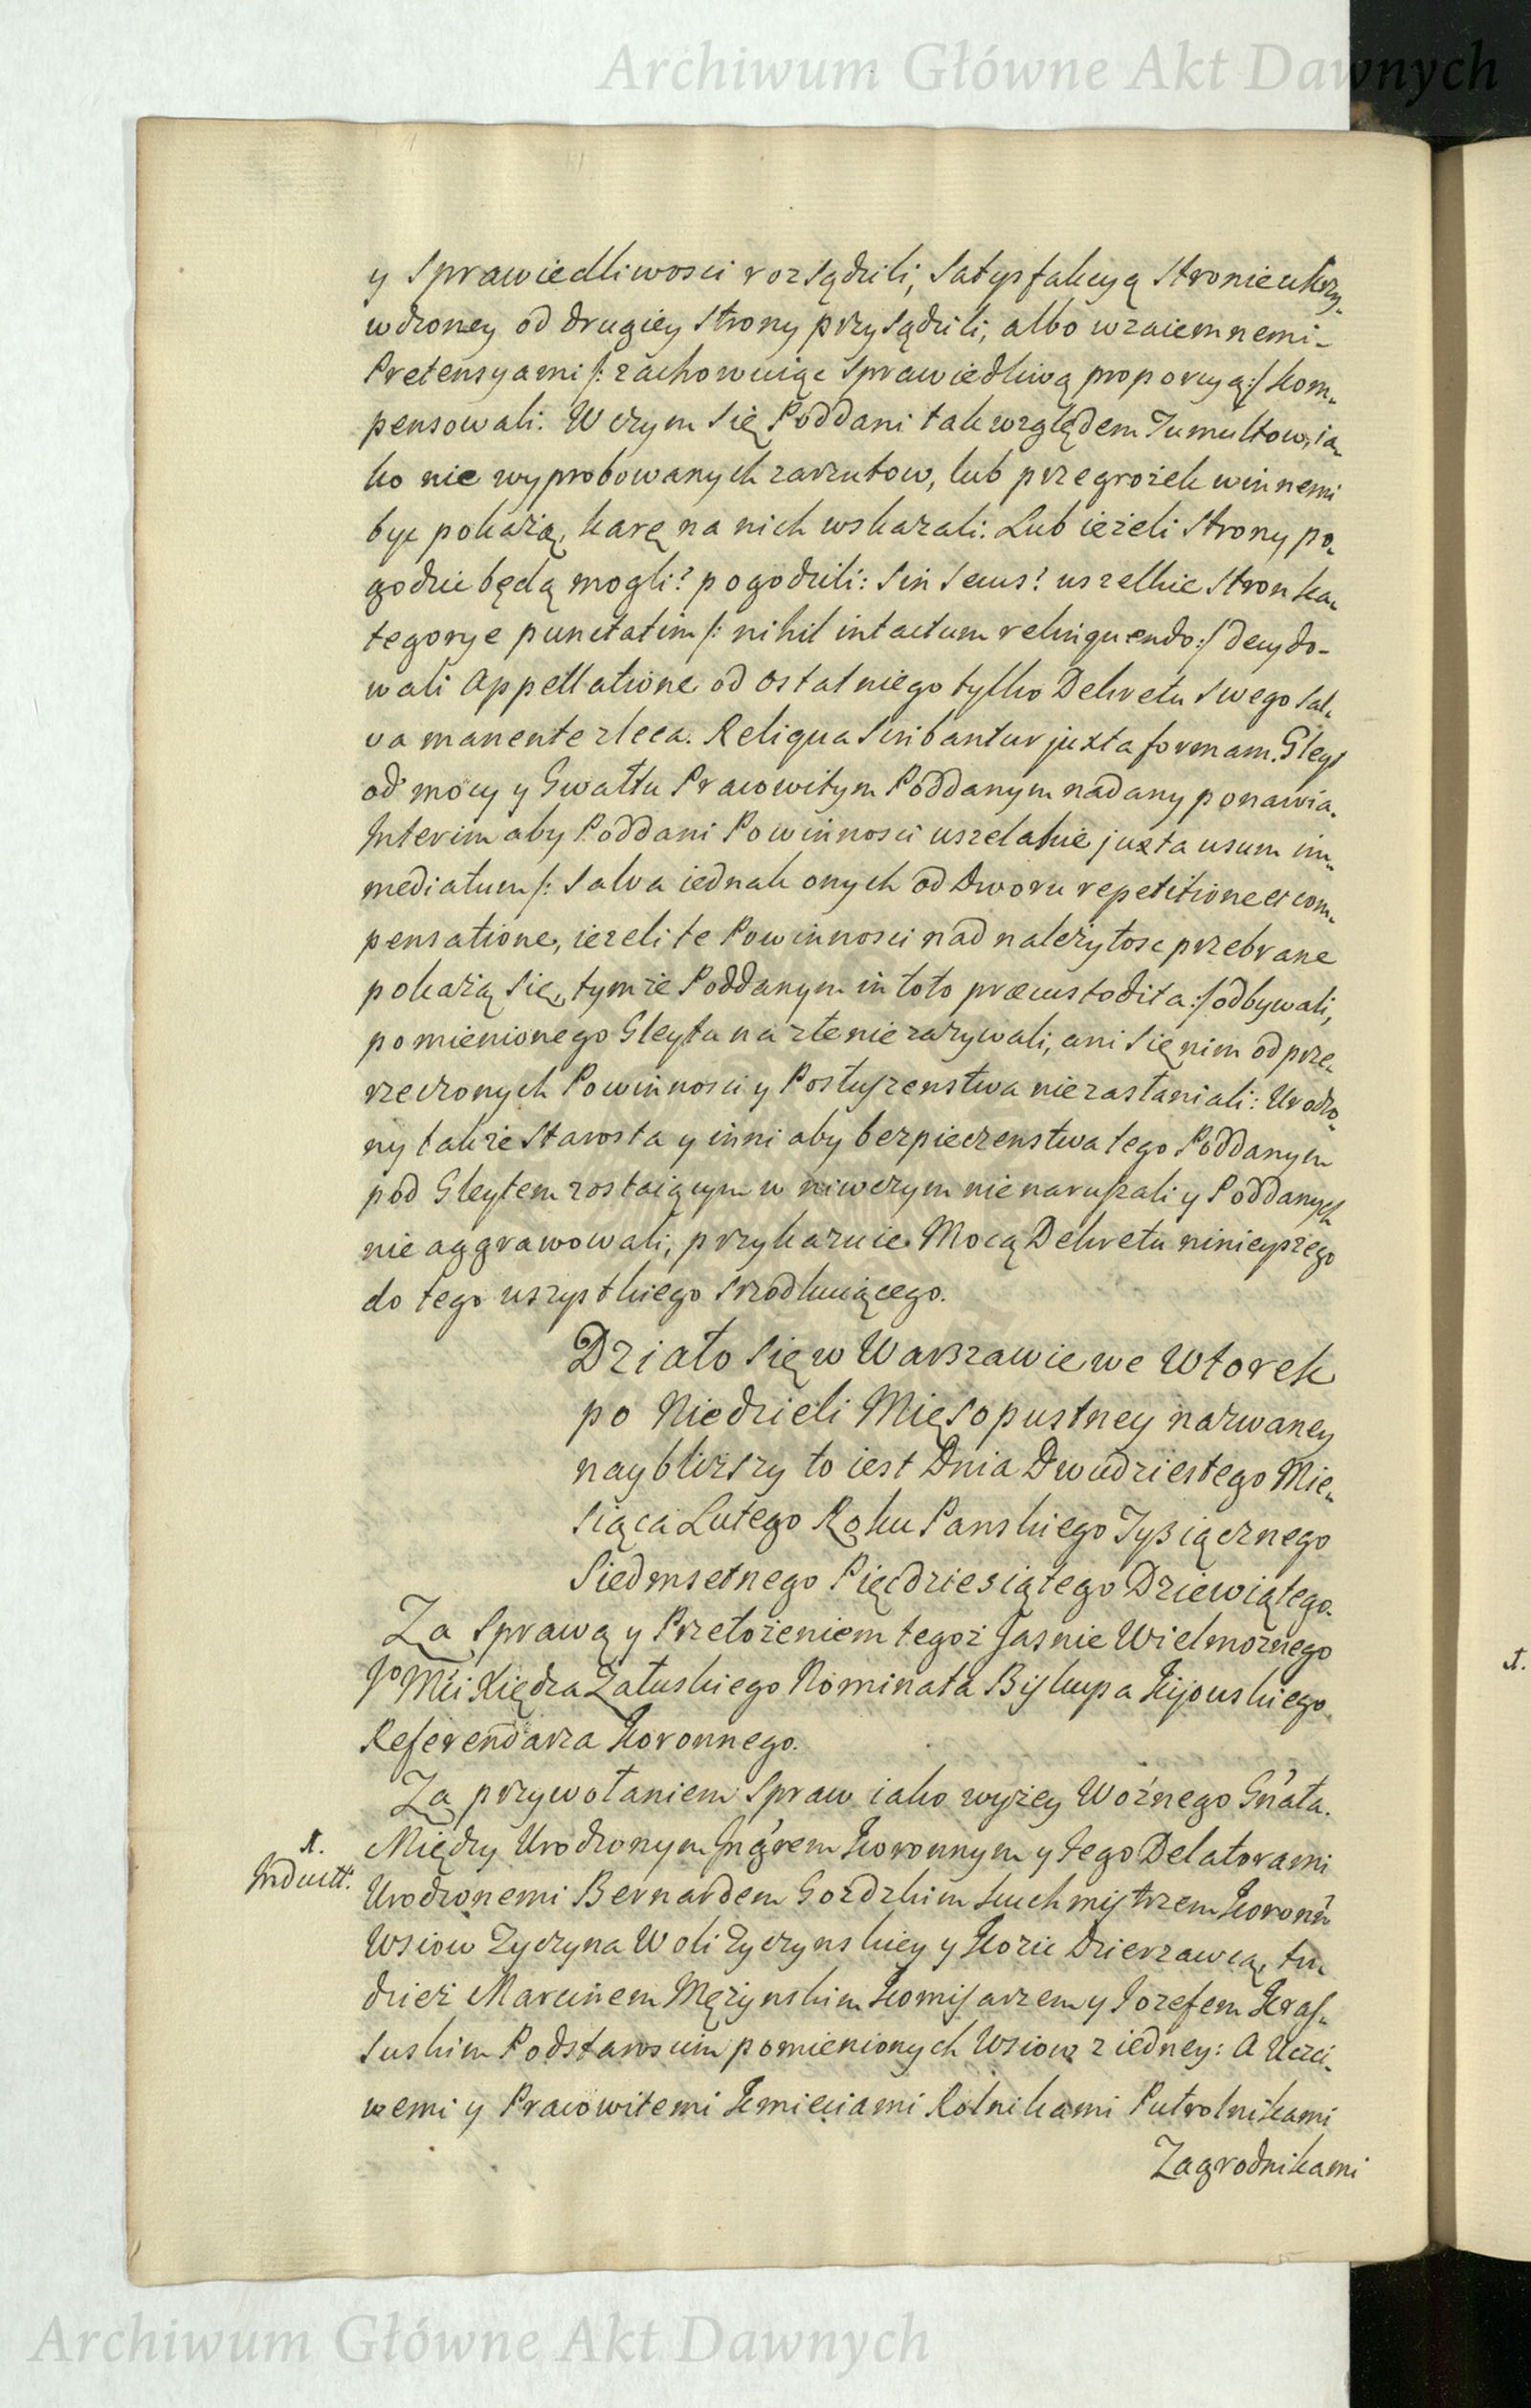 Archiwum Główne Akt Dawnych
y Sprawiedliwosci rozsądzili, Satysfakcyą Stronie ukrzy-
wdzoney od drugiey Strony przysądzili, albo wzaiemnemi-
Pretensyami /: zachowuiąc Sprawiedliwą proporcyą :/ kom-
pensowali. W czym Się Poddani tak względem Tumultow, ia-
ko nie wyprobowanych zarzutow, lub przegrożek winnemi
być pokażą, karę na nich wskazali. Lub ieżeli Strony po-
godzic będą mogli? pogodzili: Sin Secus? wszelkie Stron ka-
tegorye punctatim /: nihil intactum relinquendo :/ decydo-
wali Appellatione od ostatniego tylko Dekretu Swego Sal-
va manente zleca. Reliqua Scribantur juxta formam. Gleyt
od mocy y Gwałtu Pracowitym Poddanym nadany ponawia.
Interim aby Poddani Powinnosci wszelakie juxta usum im-
mediatum /: Salva iednak onych od Dworu repetitione et com-
pensatione, iezeli te Powinnosci nad należytosc przebrane
pokażą Się, tymże Poddanym in toto præcustodita :/ odbywali,
pomienionego Gleytu na złe nie zażywali, ani Się nim od prze-
rzeczonych Powinnosci y Posłuszenstwa nie zasłaniali: Urodzo-
ny także Starosta y inni aby bezpieczenstwa tego Poddanym
pod Gleytem zostaiącym w niwczym nie naruszali y Poddanych
nie aggrawowali, przykazuie Mocą Dekretu ninieyszego
do tego wszystkiego Srzodkuiącego.
Działo Się w Warszawie we Wtorek
po Niedzieli Mięsopustney nazwaney
naybliższy to iest Dnia Dwudziestego Mie-
Siąca Lutego Roku Panskiego Tysiącznego
Siedmsetnego Pięcdziesiątego Dziewiątego.
Za Sprawą y Przełożeniem tegoż Jasnie Wielmożnego
Jº Mci Xiędza Załuskiego Nominata Biskupa Kijowskiego
Referendarza Koronnego.
Za przywołaniem Spraw iako wyżey Woźnego Gnáta.
A.
Induitt.
Między Urodzonym Ingrem Koronnym y tego Delatorami
Urodzonemi Bernardem Gozdzkim Kuchmistrzem Koronń
Wsiow Zyczyna Woli Zyczynskiey y Kozic Dzierzawcą, tu-
dzież Marcinem Mężynskim Komisarzem y Jozefem Kras-
suskim Podstarościm pomienionych Wsiow z iedney: A Uczci-
wemi y Pracowitemi Kmieciami Rolnikami Pułrolnikami
Zagrodnikami
A.
Archiwum Główne Akt Dawnych